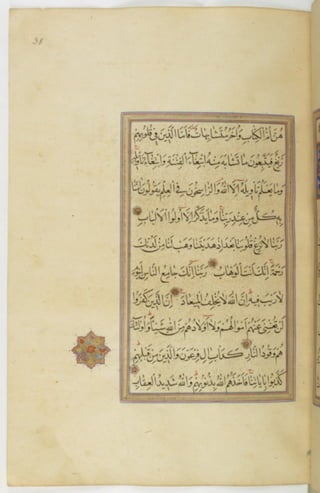 هُنَّ أُمُّ الْكِتَابِ وَأُخَرُ مُتَشَابِهَاتٌ فَأَمَّا الَّذِينَ فِي قُلُوبِهِمْ
زَيْغٌ فَيَتَّبِعُونَ مَا تَشَابَهَ مِنْهُ ابْتِغَاءَ الْفِتْنَةِ وَابْتِغَاءَ تَأْوِيلِهِ
وَمَا يَعْلَمُ تَأْوِيلَهُ إِلَّا اللَّهُ وَالرَّاسِخُونَ فِي الْعِلْمِ يَقُولُونَ آمَنَّا
بِهِ كُلٌّ مِنْ عِنْدِ رَبِّنَا وَمَا يَذَّكَّرُ إِلَّا أُولُوا الْأَلْبَابِ
رَبَّنَا لَا تُزِغْ قُلُوبَنَا بَعْدَ إِذْ هَدَيْتَنَا وَهَبْ لَنَا مِنْ لَدُنْكَ
رَحْمَةً إِنَّكَ أَنْتَ الْوَهَّابُ رَبَّنَا إِنَّكَ جَامِعُ النَّاسِ لِيَوْمٍ
لَا رَيْبَ فِيهِ إِنَّ اللَّهَ لَا يُخْلِفُ الْمِيعَادَ إِنَّ الَّذِينَ كَفَرُوا
لَنْ تُغْنِيَ عَنْهُمْ أَمْوَالُهُمْ وَلَا أَوْلَادُهُمْ مِنَ اللَّهِ شَيْئًا وَأُولَئِكَ
هُمْ وَقُودُ النَّارِ كَدَأْبِ آلِ فِرْعَوْنَ وَالَّذِينَ مِنْ قَبْلِهِمْ
كَذَّبُوا بِآيَاتِنَا فَأَخَذَهُمُ اللَّهُ بِذُنُوبِهِمْ وَاللَّهُ شَدِيدُ الْعِقَابِ